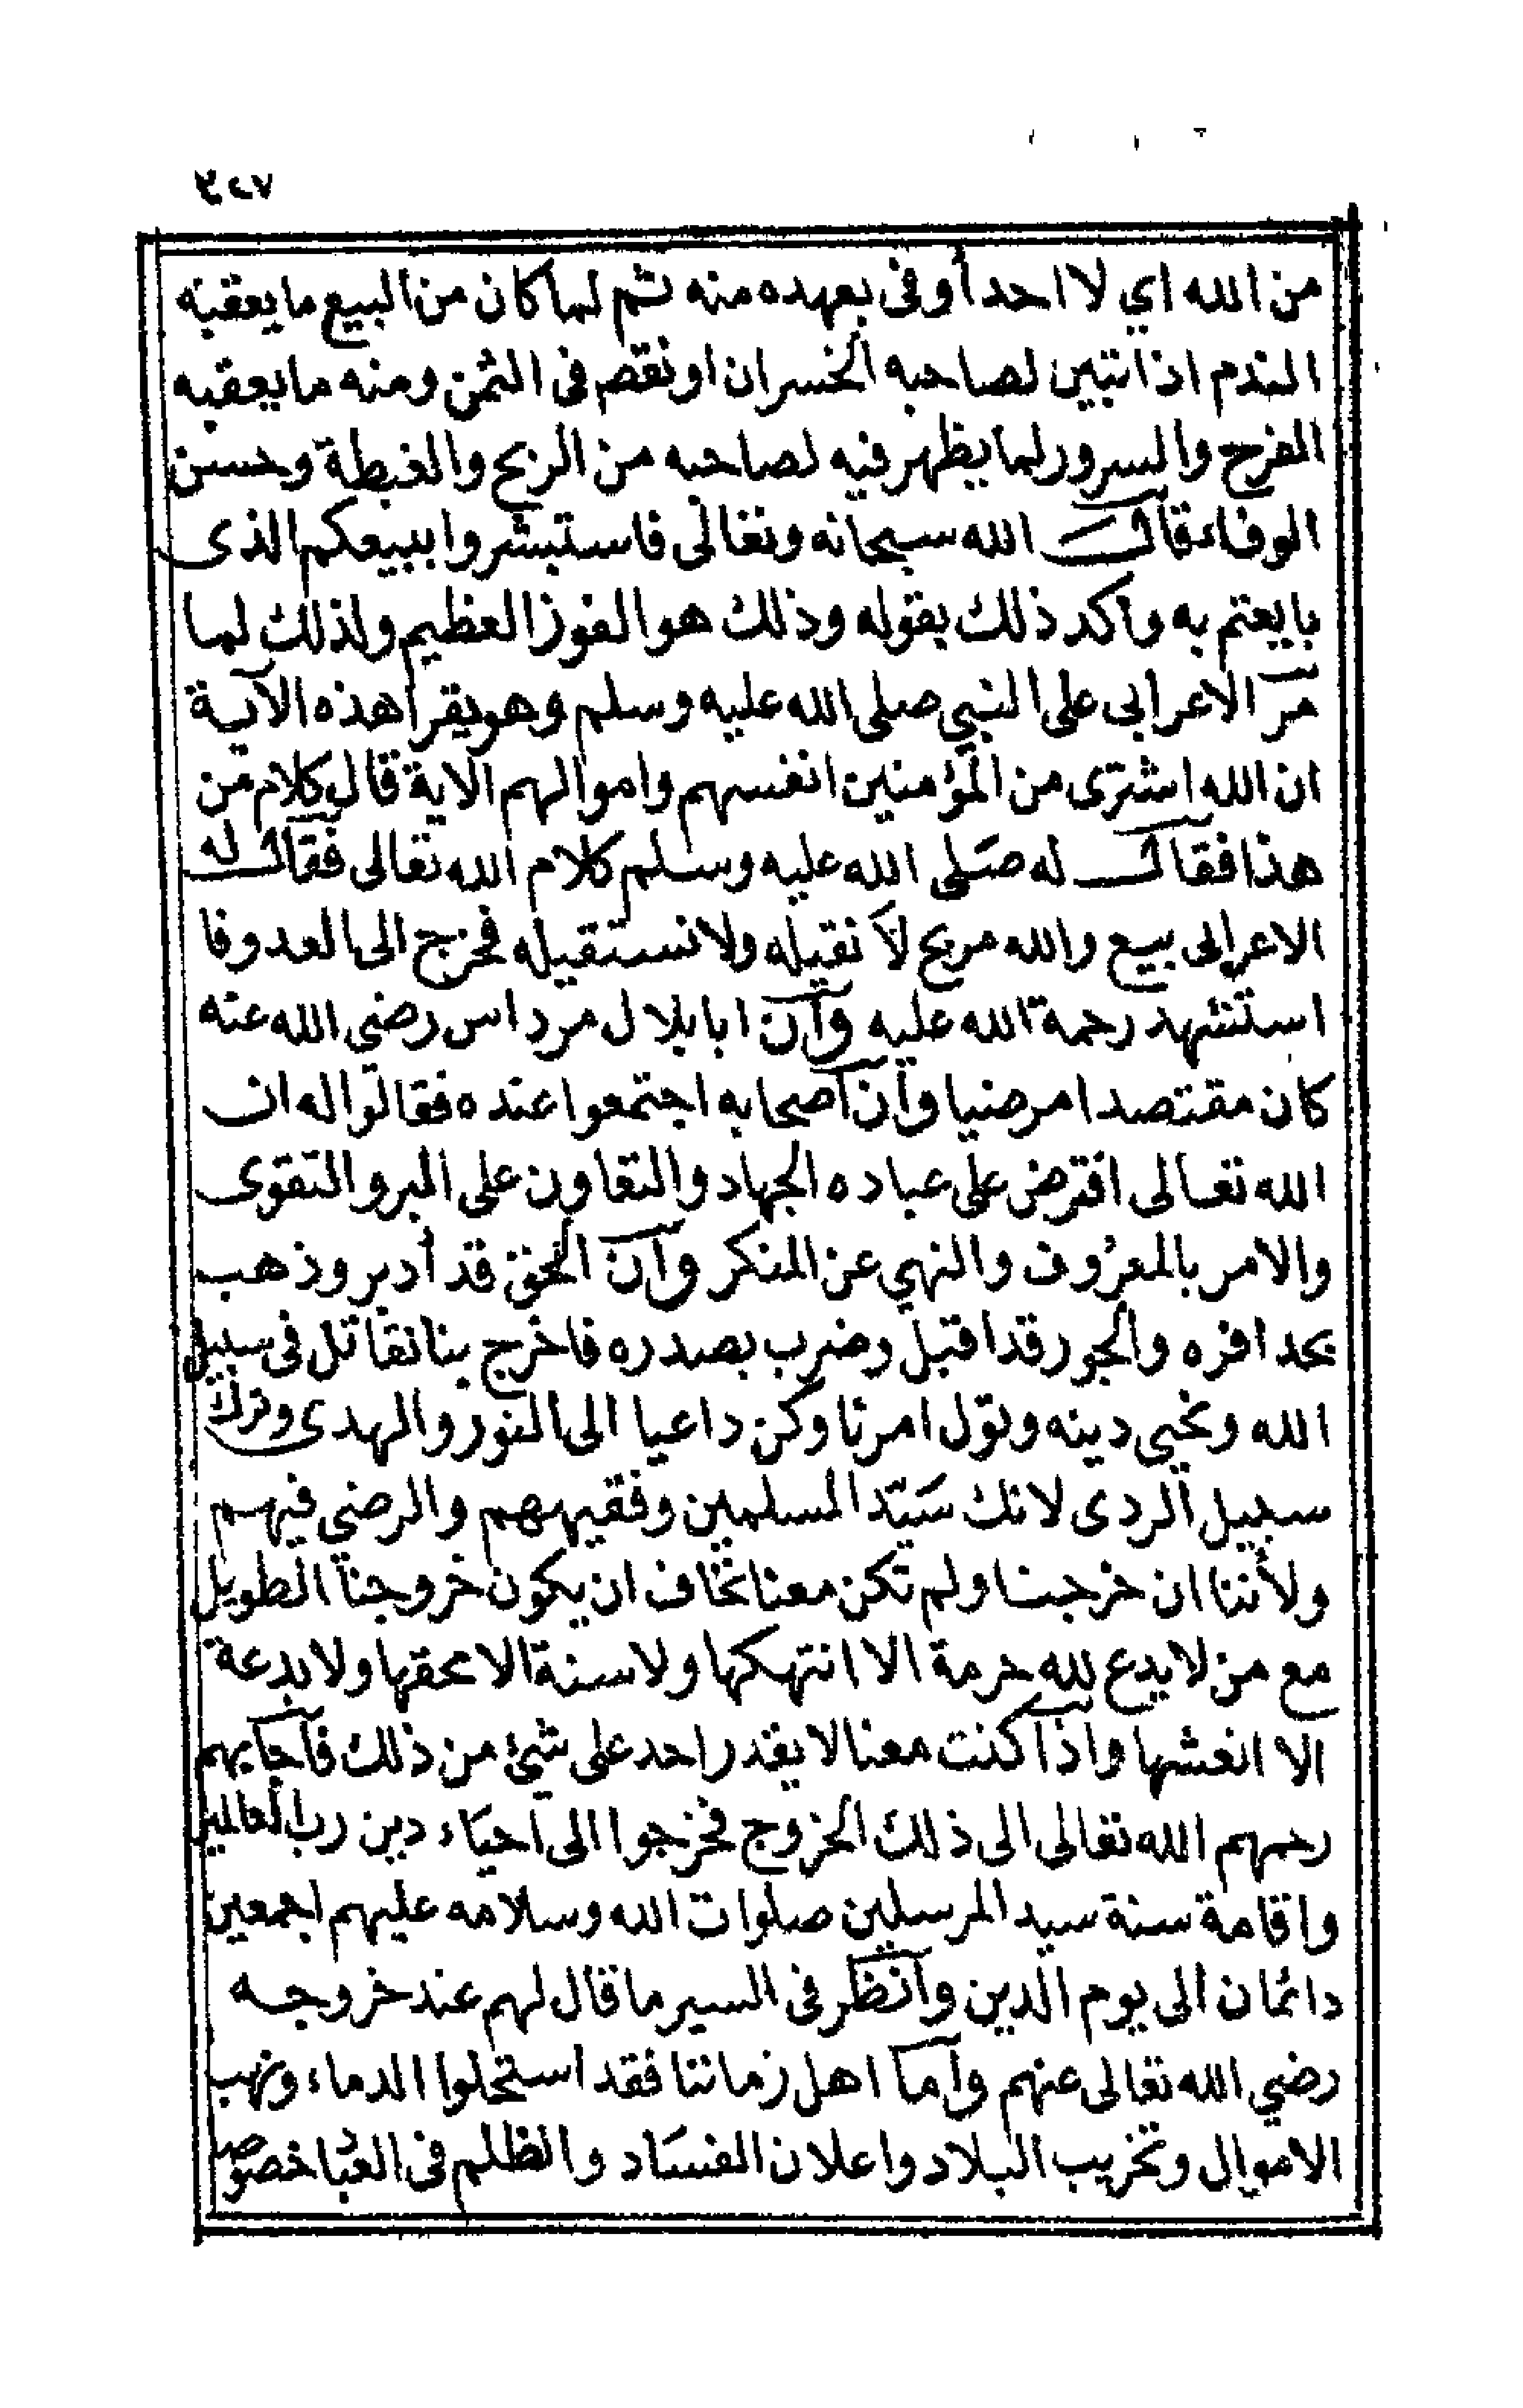 ٤٢٧
من الله اي لا احد أوفى بعهده منه ثم لما كان من البيع ما يعقبه
الندم اذا تبين لصاحبه الخسران او نقص فى الثمن ومنه ما يعقبه
الفرح والسرور لما يظهر فيه لصاحبه من الربح والغبطة وحسن
الوفاء قال الله سبحانه وتعالى فاستبشروا ببيعكم الذى
بايعتم به واكد ذلك بقوله وذلك هو الفوز العظيم ولذلك لما
مرّ الاعرابى على النبي صلى الله عليه وسلم وهو يقرأ هذه الآية
ان الله اشترى من المؤمنين انفسهم واموالهم الاية قال كلام من
هذا فقال له صلى الله عليه وسلم كلام الله تعالى فقال له
الاعرابى بيع والله مربح لا نقيله ولا نستقيله فخرج الى العدو فا
استشهد رحمة الله عليه وان ابا بلال مرداس رضي الله عنه
كان مقتصدا مرضيا وان اصحابه اجتمعوا عنده فقالوا له ان
الله تعالى افترض على عباده الجهاد والتعاون على البر والتقوى
والامر بالمعروف والنهي عن المنكر وان الحق قد أدبر وذهب
بحدافره والجور قد اقبل وضرب بصدره فاخرج بنا نقاتل فى سبيل
الله ونحيي دينه وتول امرنا وكن داعيا الى النور والهدى وترك
سبيل الردى لانك سيّد المسلمين وفقيههم والرضي فيهم
ولأننا ان خرجنا ولم تكن معنا نخاف ان يكون خروجنا الطويل
مع من لا يدع لله حرمة الا انتهكها ولا سنة الا محقها ولا بدعة
الا انعشها واذا كنت معنا لا يقدر احد على شئ من ذلك فاجابهم
رحمهم الله تعالى الى ذلك الخروج فخرجوا الى احياء دين رب العالمين
واقامة سنة سيد المرسلين صلوات الله وسلامه عليهم اجمعين
دائمان الى يوم الدين وانظر فى السير ما قال لهم عند خروجه
رضي الله تعالى عنهم واما اهل زماننا فقد استحلوا الدماء ونهب
الاموال وتخريب البلاد واعلان الفساد والظلم فى العباد خصوصا